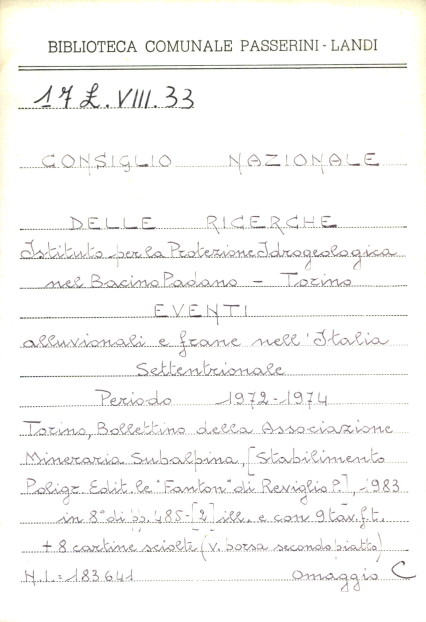 BIBLIOTECA COMUNALE PASSERINI - LANDI
17 L. VIII. 33
CONSIGLIO NAZIONALE
DELLE RICERCHE
Istituto per la Protezione Idrogeologica
nel Bacino Padano - Torino
EVENTI
alluvionali e frane nell'Italia
Settentrionale
Periodo 1972-1974
Torino, Bollettino della Associazione
Mineraria Subalpina, [Stabilimento
Poligr. Edit.le "Fanton" di Reviglio P.], 1983
in 8° di pp. 485-[2] ill. e con 9 tav. f.t.
+ 8 cartine sciolte (v. borsa secondo piatto)
N.I. = 183641 Omaggio C